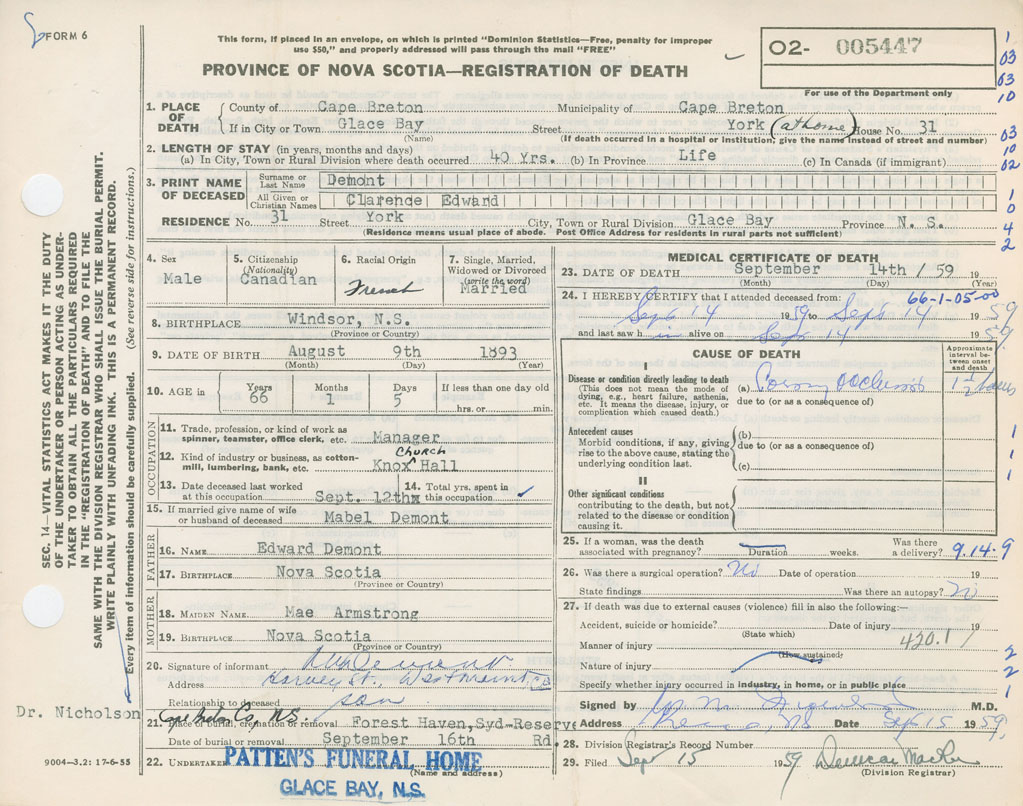 FORM 6
This form, if placed in an envelope, on which is printed "Dominion Statistics—Free, penalty for improper
use $50," and properly addressed will pass through the mail "FREE"
O2- 005447
For use of the Department only
PROVINCE OF NOVA SCOTIA—REGISTRATION OF DEATH
1
03
03
10
03
10
02
1
0
4
2
1. PLACE OF DEATH
County of Cape Breton Municipality of Cape Breton
If in City or Town Glace Bay Street York (at home) House No. 31
(Name) (If death occurred in a hospital or institution; give the name instead of street and number)
2. LENGTH OF STAY (in years, months and days)
(a) In City, Town or Rural Division where death occurred 40 Yrs. (b) In Province Life (c) In Canada (if immigrant)
3. PRINT NAME OF DECEASED
Surname or Last Name Demont
All Given or Christian Names Clarence Edward
RESIDENCE No. 31 Street York City, Town or Rural Division Glace Bay Province N. S.
(Residence means usual place of abode. Post Office Address for residents in rural parts not sufficient)
4. Sex
Male
5. Citizenship
(Nationality)
Canadian
6. Racial Origin
French
7. Single, Married,
Widowed or Divorced
(write the word)
Married
8. BIRTHPLACE Windsor, N.S.
(Province or Country)
9. DATE OF BIRTH August 9th 1893
(Month) (Day) (Year)
10. AGE in
Years Months Days If less than one day old
66 1 5 hrs. or min.
OCCUPATION
11. Trade, profession, or kind of work as
spinner, teamster, office clerk, etc. Manager
12. Kind of industry or business, as cotton-
mill, lumbering, bank, etc. Knox CHURCH Hall
13. Date deceased last worked
at this occupation Sept. 12th
14. Total yrs. spent in
this occupation
15. If married give name of wife
or husband of deceased Mabel Demont
FATHER
16. NAME Edward Demont
17. BIRTHPLACE Nova Scotia
(Province or Country)
MOTHER
18. MAIDEN NAME Mae Armstrong
19. BIRTHPLACE Nova Scotia
(Province or Country)
20. Signature of informant
Address Harvey St. Westmount
Relationship to deceased son
Cape Breton Co, N.S.
21. Place of burial, cremation or removal Forest Haven, Syd-Reserve
Date of burial or removal September 16th Rd.
22. UNDERTAKER PATTEN'S FUNERAL HOME
(Name and address)
GLACE BAY, N.S.
MEDICAL CERTIFICATE OF DEATH
23. DATE OF DEATH September 14th / 59 19
(Month) (Day) (Year)
24. I HEREBY CERTIFY that I attended deceased from: 66-1-05-00
Sept 14 1959 to Sept 14 1959
and last saw h im alive on Sept 14 1959
CAUSE OF DEATH
Approximate
interval be-
tween onset
and death
I
Disease or condition directly leading to death
(This does not mean the mode of
dying, e.g., heart failure, asthenia,
etc. It means the disease, injury, or
complication which caused death.)
(a)
due to (or as a consequence of)
1 1/2 hours
Antecedent causes
Morbid conditions, if any, giving
rise to the above cause, stating the
underlying condition last.
(b)
due to (or as a consequence of)
(c)
1
1
1
II
Other significant conditions
contributing to the death, but not
related to the disease or condition
causing it.
25. If a woman, was the death
associated with pregnancy? Duration weeks.
Was there
a delivery? 9.14.9
26. Was there a surgical operation? No Date of operation 19
State findings Was there an autopsy? No
27. If death was due to external causes (violence) fill in also the following:—
Accident, suicide or homicide? Date of injury 19
(State which)
Manner of injury 420.1
(How sustained)
Nature of injury
Specify whether injury occurred in industry, in home, or in public place
2
2
1
Signed by M.D.
Address N.S. Date Sept 15 1959
28. Division Registrar's Record Number
29. Filed Sept 15 1959 Duncan
(Division Registrar)
SEC. 14—VITAL STATISTICS ACT MAKES IT THE DUTY
OF THE UNDERTAKER OR PERSON ACTING AS UNDER-
TAKER TO OBTAIN ALL THE PARTICULARS REQUIRED
IN THE "REGISTRATION OF DEATH" AND TO FILE THE
SAME WITH THE DIVISION REGISTRAR WHO SHALL ISSUE THE BURIAL PERMIT.
WRITE PLAINLY WITH UNFADING INK. THIS IS A PERMANENT RECORD.
Every item of information should be carefully supplied. (See reverse side for instructions.)
Dr. Nicholson
9004-3.2: 17-6-55